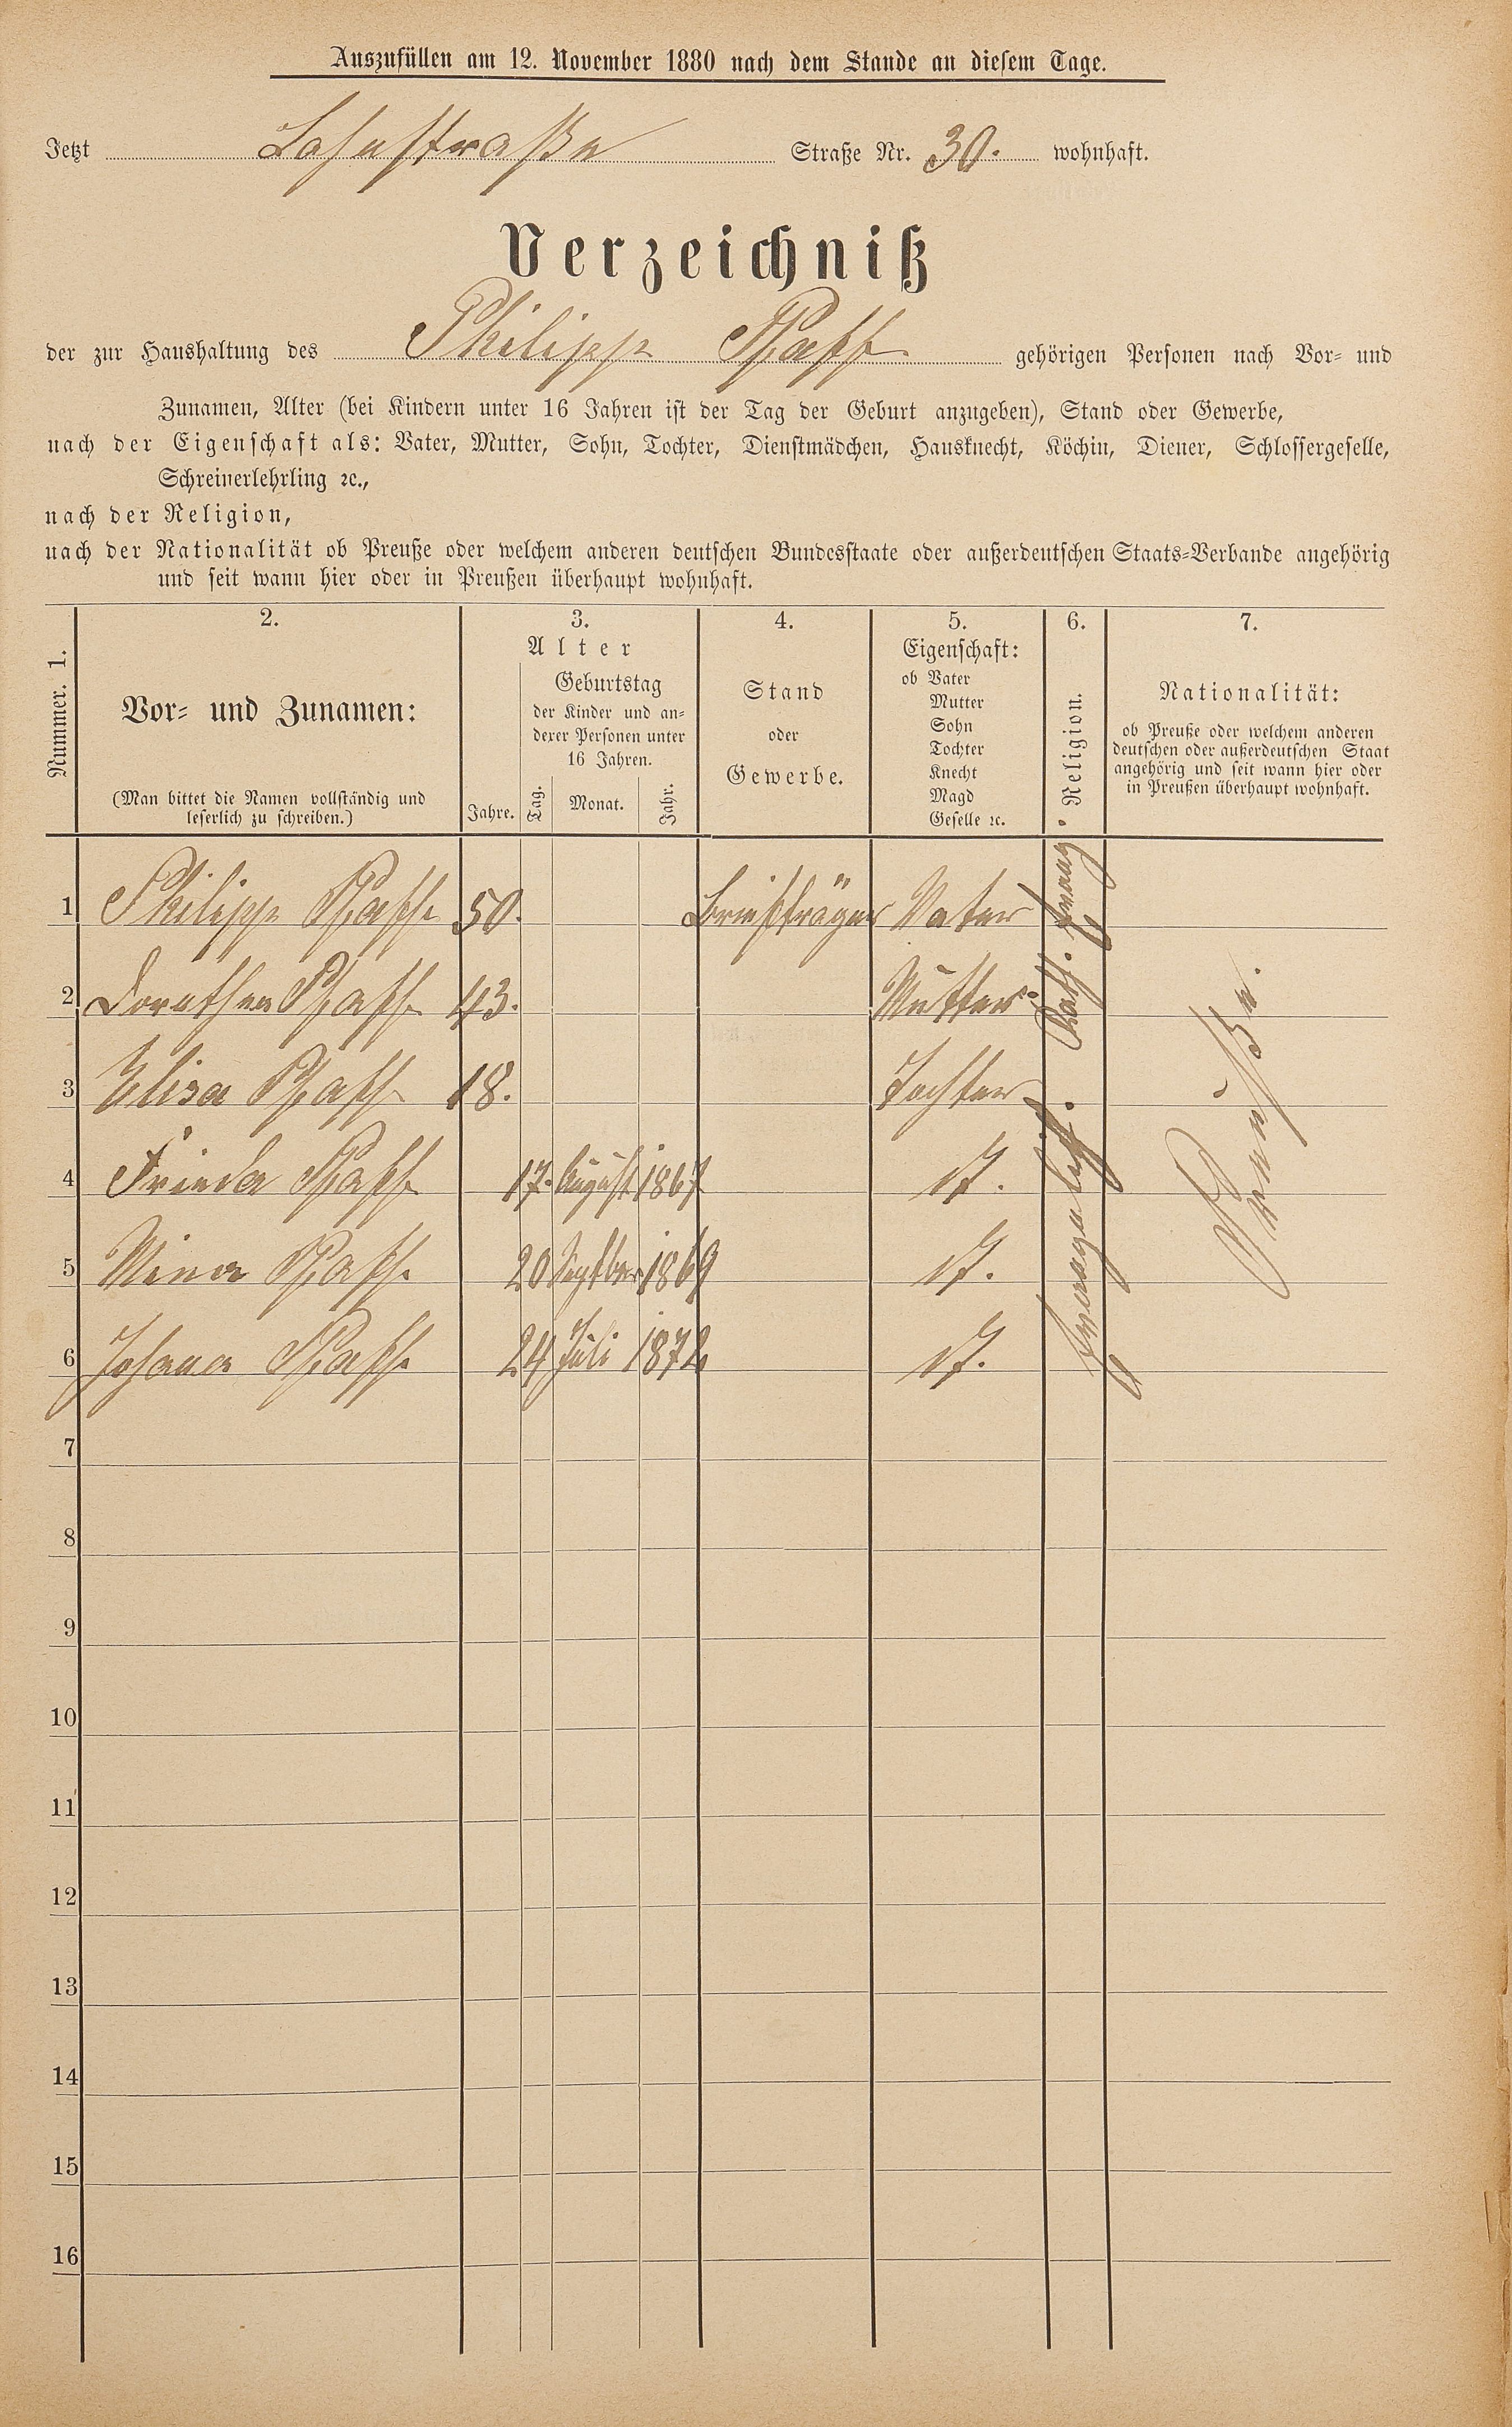 Auszufüllen am 12. November 1880 nach dem Stande an diesem Tage.
Jetzt Lahnstraße Straße Nr. 30. wohnhaft.
Verzeichniß
der zur Haushaltung des Philipp Pfaff gehörigen Personen nach Vor- und
Zunamen, Alter (bei Kindern unter 16 Jahren ist der Tag der Geburt anzugeben), Stand oder Gewerbe,
nach der Eigenschaft als: Vater, Mutter, Sohn, Tochter, Dienstmädchen, Hausknecht, Köchin, Diener, Schlossergeselle,
Schreinerlehrling ꝛc.,
nach der Religion,
nach der Nationalität ob Preuße oder welchem anderen deutschen Bundesstaate oder außerdeutschen Staats-Verbande angehörig
und seit wann hier oder in Preußen überhaupt wohnhaft.
Nummer. 1.
2.
Vor- und Zunamen:
(Man bittet die Namen vollständig und
leserlich zu schreiben.)
3.
Alter
Geburtstag
der Kinder und an-
derer Personen unter
16 Jahren.
Jahre. Tag. Monat. Jahr.
4.
Stand
oder
Gewerbe.
5.
Eigenschaft:
ob Vater
Mutter
Sohn
Tochter
Knecht
Magd
Geselle ꝛc.
6.
Religion.
7.
Nationalität:
ob Preuße oder welchem anderen
deutschen oder außerdeutschen Staat
angehörig und seit wann hier oder
in Preußen überhaupt wohnhaft.
1 Philipp Pfaff 50. Briefträger Vater
2 Dorothea Pfaff 43. Mutter
3 Elisa Pfaff 18. Tochter
4 Frieda Pfaff 17. August 1867 d.
5 Mina Pfaff 20 Septber 1869 d.
6 Johana Pfaff 24 Juli 1872 d.
evang.
Kath.
evangelisch.
Preußen.
7
8
9
10
11
12
13
14
15
16